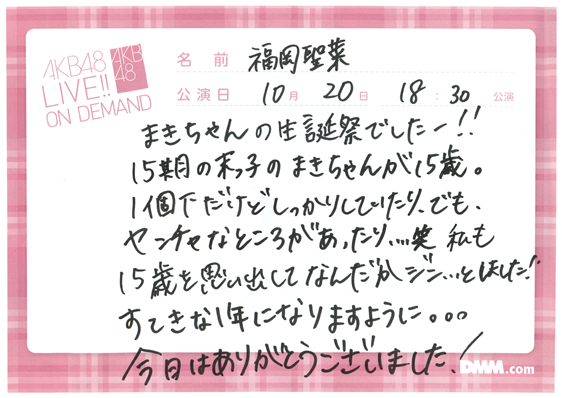 AKB48
LIVE!!
ON DEMAND
AKB
48
名前 福岡聖菜
公演日 10月 20日 18:30 公演
まきちゃんの生誕祭でしたー!!
15期の末っ子のまきちゃんが15歳。
1個下だけどしっかりしていたり、でも、
ヤンチャなところがあったり、、、笑 私も
15歳を思い出してなんだかジン…としました!
すてきな1年になりますように。。。
今日はありがとうございました!
DMM.com